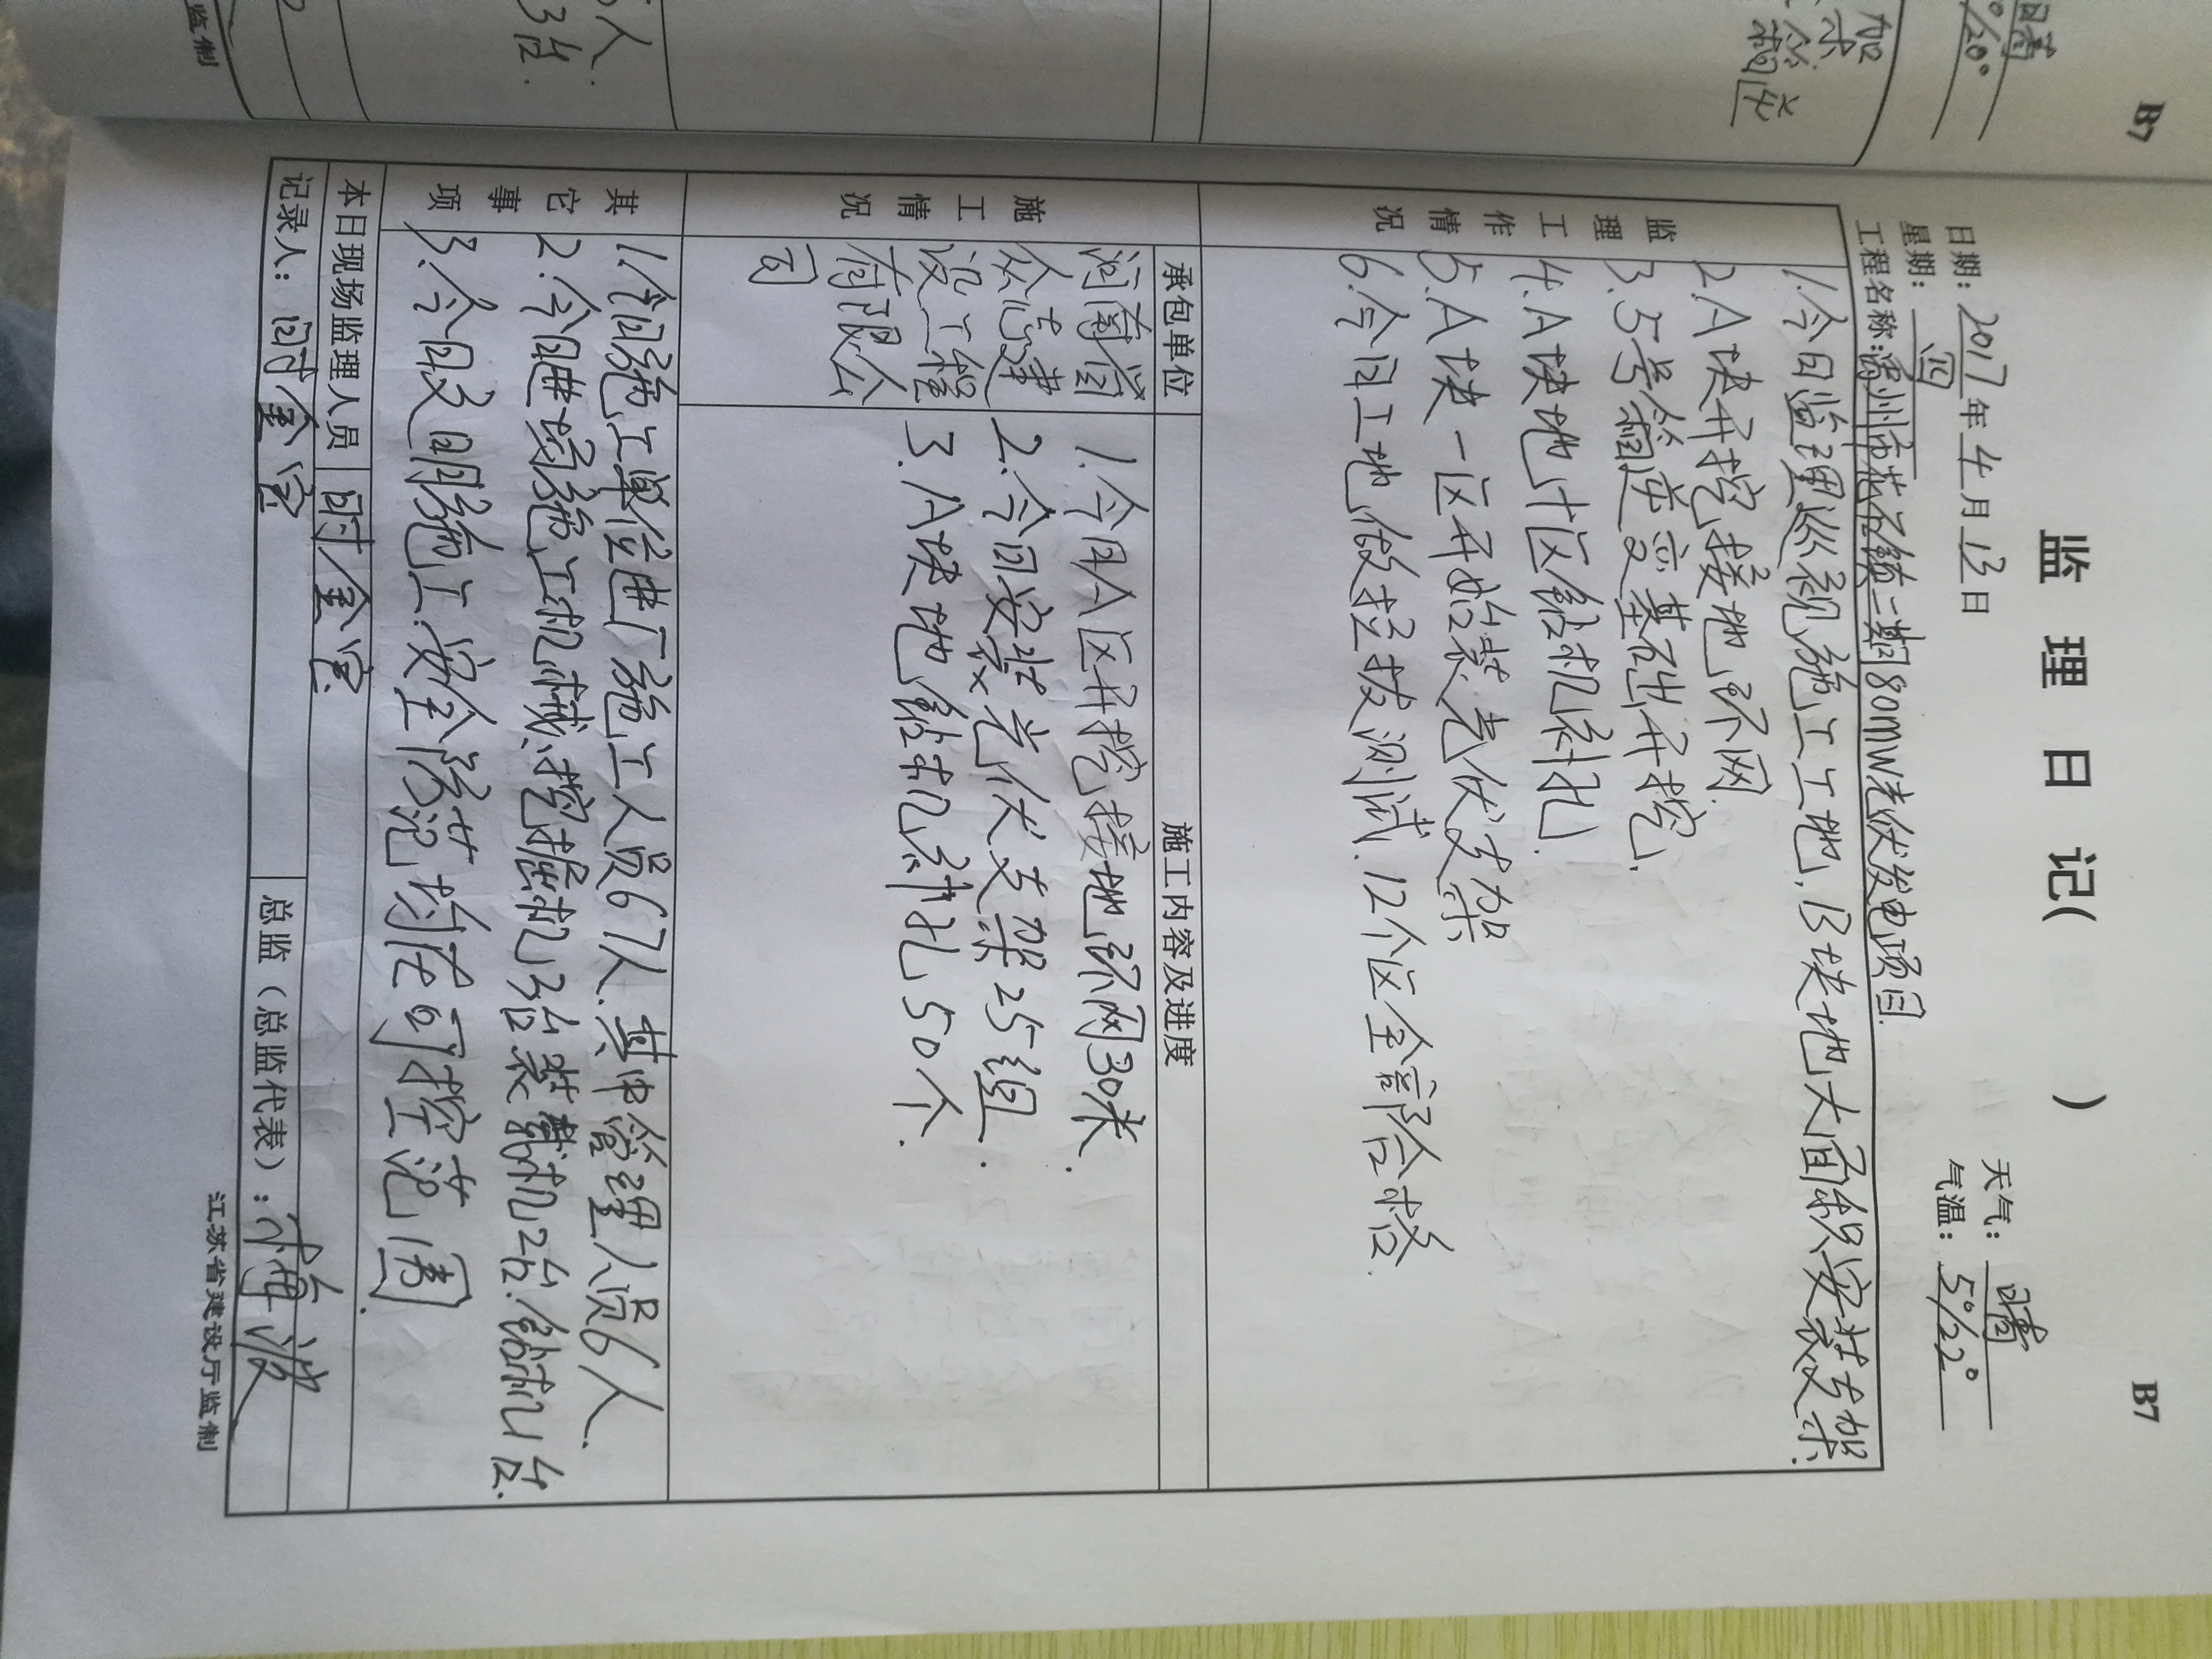 B7
监理日记( )
日期:2017年4月13日 天气:晴
星期:四 气温:5°/22°
工程名称:禹州市花石镇二期80mw光伏发电项目.
监理工作情况
1.今日监理巡视施工工地,B块地大面积安装支架.
2.A块开挖接地环网.
3.5号箱逆变基础开挖.
4.A块地十区钻机斜孔.
5.A块一区开始装光伏支架
6.今日工地做拉拔测试.12个区全部合格.
施工情况
承包单位 施工内容及进度
河南省
众志建
设工程
有限公
司
1.今日A区开挖接地环网30米.
2.今日安装光伏支架25组.
3.A块地钻机斜孔50个.
其它事项
1.今日施工单位进厂施工人员67人.其中管理人员6人.
2.今日进场施工机械:挖掘机3台装载机2台.钻机11台.
3.今日文明施工.安全防范均在可控范围.
本日现场监理人员 时金宝
记录人:时金宝 总监(总监代表):
江苏省建设厅监制
B7
晴
/20°
架
箱逆
人.
3台.
监制